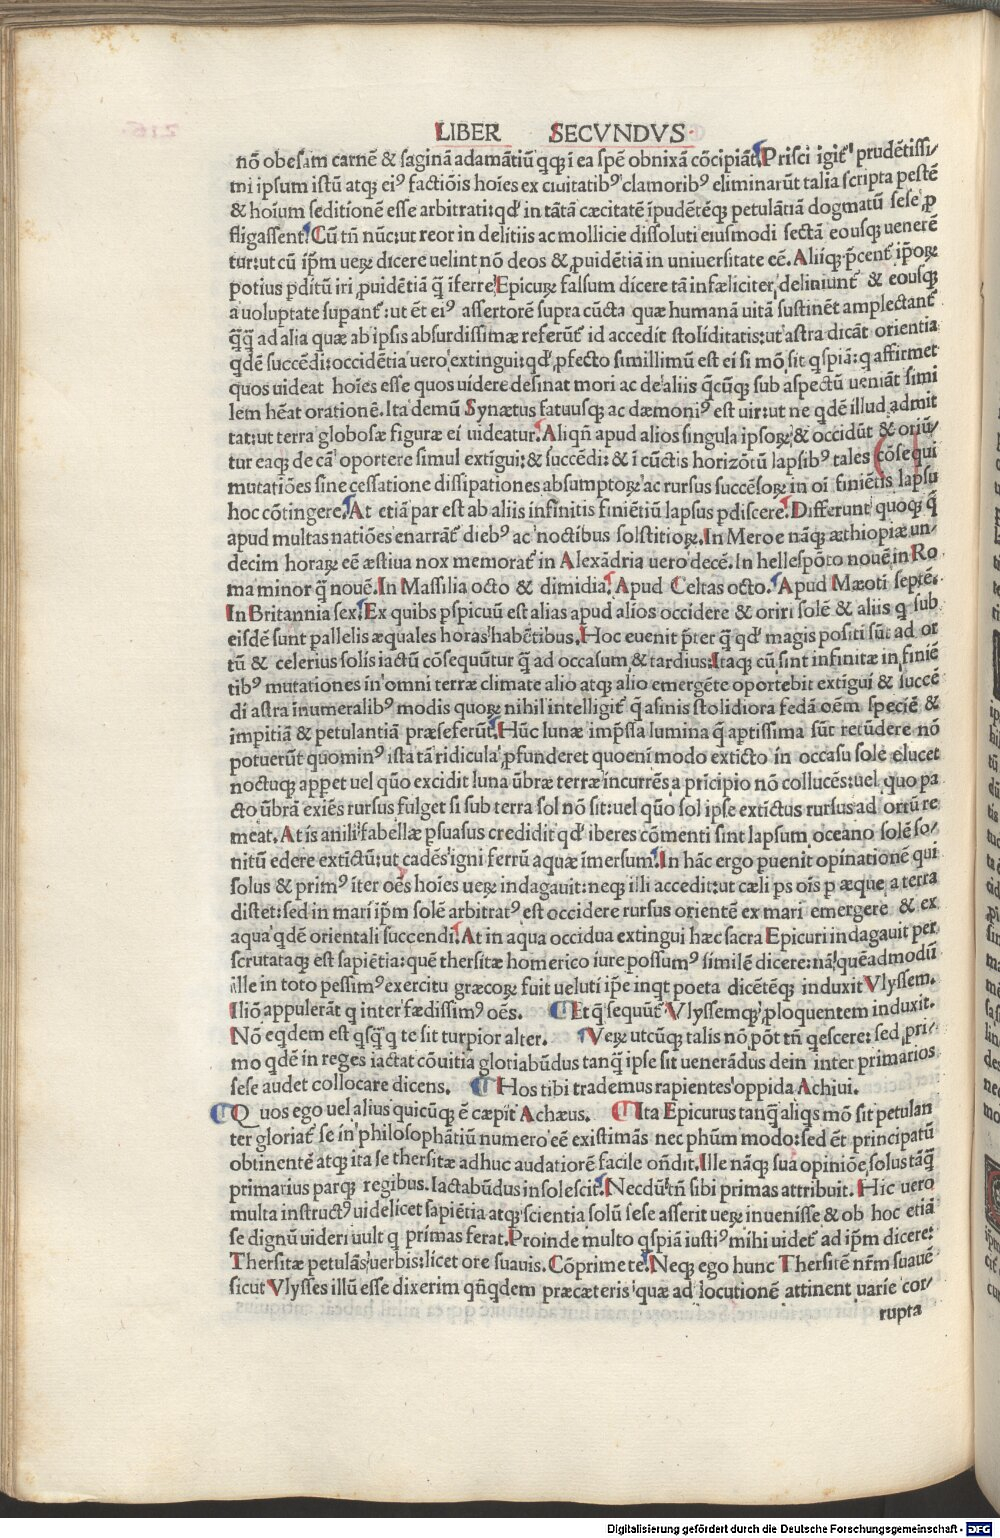 LIBER SECVNDVS
nō obesam carnē & saginā adamātiū qq; ī ea spē obnixā cōcipiāt. Prisci igit᷑ prudētissi/
mi ipsum istū atq; ei⁹ factiōis hoīes ex ciuitatib⁹ clamorib⁹ eliminarūt talia scripta pestē
& hoīum seditionē esse arbitrati: qd' in tātā cæcitatē īpudētēq; petulātiā dogmatū sese ꝓ
fligassent. Cū tñ nūc: ut reor in delitiis ac mollicie dissoluti eiusmodi sectā eousq; uenerē
tur: ut cū ip̄m ueꝝ dicere uelint nō deos & ꝓuidētiā in uniuersitate eē. Aliiq; p̄cent᷑ ip̄oꝝ
potius ꝑditū iri ꝓuidētiā q̄ īferre Epicuꝝ falsum dicere tā infæliciter deliniunt᷑ & eousq;
a uoluptate supant᷑: ut ēt ei⁹ assertorē supra cūcta quæ humanā uitā sustinēt amplectant᷑
q̄q̄ ad alia quæ ab ipsis absurdissimæ referūt᷑ id accedit stoliditatis: ut astra dicāt orientia
qdē succēdi: occidētia uero extingui: qd' ꝓfecto simillimū est ei si mō sit qspiā: q affirmet
quos uideat hoīes esse quos uidere desinat mori ac de aliis q̄cūq; sub aspectū ueniāt simi
lem hēat orationē. Ita demū Synætus fatuusq; ac dæmoni⁹ est uir: ut ne qdē illud admit
tat: ut terra globosæ figuræ ei uideatur. Aliqñ apud alios singula ipsoꝝ & occidūt & oriū/
tur eaq; de cā oportere simul extīgui: & succēdi: & ī cūctis horizōtū lapsib⁹ tales cōsequi
mutatiōes sine cessatione dissipationes absumptoꝝ ac rursus succēsoꝝ in oī finiētis lapsu
hoc cōtingere. At etiā par est ab aliis infinitis finiētiū lapsus pdiscere. Differunt quoq; q̄
apud multas natiōes enarrāt᷑ dieb⁹ ac noctibus solstitioꝝ. In Meroe nāq; æthiopiæ un-
decim horaꝝ eē æstiua nox memorat᷑ in Alexādria uero decē. In hellespōto nouē in Ro
ma minor q̄ nouē. In Massilia octo & dimidia. Apud Celtas octo. Apud Mæoti septē.
In Britannia sex. Ex quibs pspicuū est alias apud alios occidere & oriri solē & aliis q sub
eisdē sunt pallelis æquales horas habētibus. Hoc euenit p̄ter q̄ qd' magis positi sūt ad or
tū & celerius solis iactū cōsequūtur q̄ ad occasum & tardius: Itaq; cū sint infinitæ in finiē
tib⁹ mutationes in omni terræ climate alio atq; alio emergēte oportebit extīgui & succē
di astra inumeralib⁹ modis quoꝝ nihil intelligit᷑ q̄ asinis stolidiora fedā oēm speciē &
impitiā & petulantiā præseferūt. Hūc lunæ imp̄ssa lumina q̄ aptissima sūt retūdere nō
potuerūt quomin⁹ ista tā ridicula ꝓfunderet quoeni modo exticto in occasu sole elucet
noctuq; appet uel quō excidit luna ūbræ terræ īncurrēs a pricipio nō collucēs: uel quo pa
cto ūbrā exiēs rursus fulget si sub terra sol nō sit: uel quō sol ipse extīctus rursus ad ortū re
meat. At is anili fabellæ psuasus credidit qd' iberes cōmenti sint lapsum oceano solē so/
nitū edere extictū: ut cadēs igni ferrū aquæ īmersum. In hāc ergo puenit opinationē qui
solus & prim⁹ īter oēs hoīes ueꝝ indagauit: neq; illi accedit: ut cæli ps oīs p æque a terra
distet: sed in mari ip̄m solē arbitrat⁹ est occidere rursus orientē ex mari emergere & ex
aqua qdē orientali succendi. At in aqua occidua extingui hæc sacra Epicuri indagauit per
scrutataq; est sapiētia: quē thersitæ homerico iure possum⁹ similē dicere: nā quēadmodū
ille in toto pessim⁹ exercitu græcoꝝ fuit ueluti ip̄e inqt poeta dicētēq; induxit Vlyssem.
Iliō appulerāt q inter fædissim⁹ oēs. Et q̄ sequūt᷑ Vlyssemq; ꝓloquentem induxit.
Nō eqdem est qsq̄ q te sit turpior alter. Veꝝ utcūq; talis nō pōt tñ qescere: sed pri/
mo qdē in reges iactat cōuitia glotiabūdus tanq̄ ipse sit uenerādus dein inter primarios
sese audet collocare dicens. Hos tibi trademus rapientes oppida Achiui.
Quos ego uel alius quicūq; ē cæpit Achæus. Ita Epicurus tanq̄ aliqs mō sit petulan
ter gloriat᷑ se in philosophātiū numero eē existimās nec phūm modo: sed ēt principatū
obtinentē atq; ita se thersitæ adhuc audatiorē facile oñdit. Ille nāq; sua opiniōe solus tāq̄
primarius parq; regibus. Iactabūdus insolescit. Necdū tñ sibi primas attribuit. Hic uero
multa instruct⁹ uidelicet sapiētia atq; scientia solū sese asserit ueꝝ inuenisse & ob hoc etiā
se dignū uideri uult q primas ferat. Proinde multo qspiā iusti⁹ mihi uidet᷑ ad ip̄m dicere:
Thersitæ petulās uerbis: licet ore suauis. Cōprime te. Neq; ego hunc Thersitē nr̄m suauē
sicut Vlysses illū esse dixerim qñqdem præcæteris quæ ad locutionē attinent uarie cor/
rupta
Digitalisierung gefördert durch die Deutsche Forschungsgemeinschaft - DFG